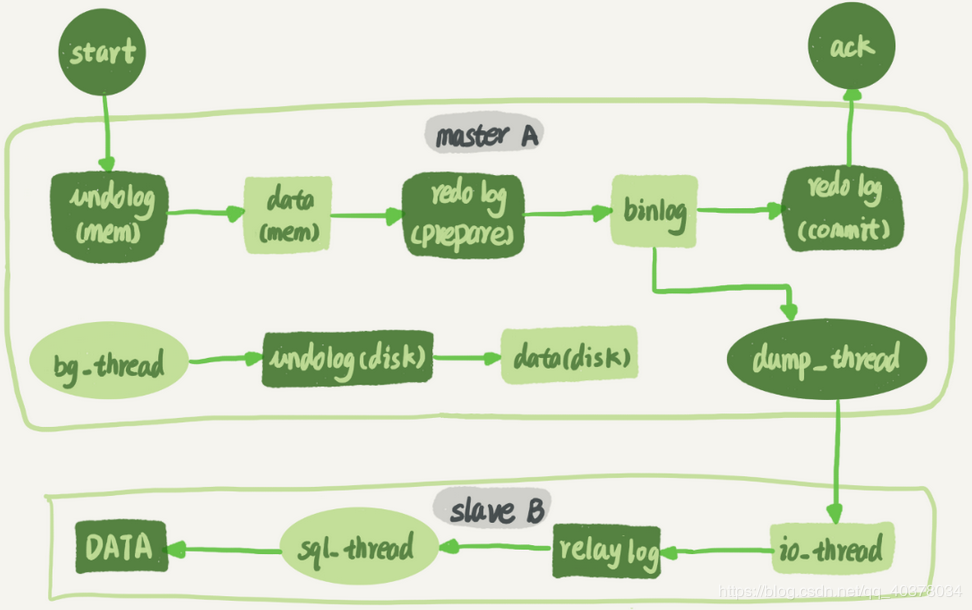 start
ack
master A
undolog
(mem)
data
(mem)
redo log
(prepare)
binlog
redo log
(commit)
bg_thread
undolog(disk)
data(disk)
dump_thread
slave B
DATA
sql_thread
relay log
io_thread
https://blog.csdn.net/qq_40378034